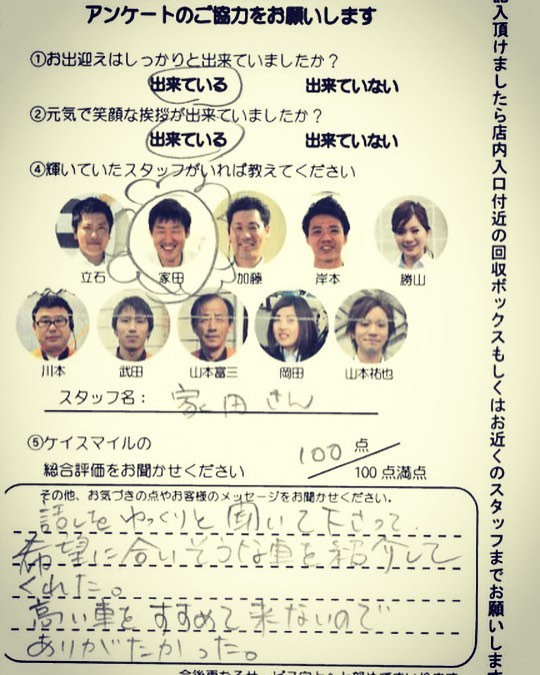 アンケートのご協力をお願いします
①お出迎えはしっかりと出来ていましたか？
出来ている 出来ていない
②元気で笑顔な挨拶が出来ていましたか？
出来ている 出来ていない
④輝いていたスタッフがいれば教えてください
立石 家田 加藤 岸本 勝山
川本 武田 山本富三 岡田 山本祐也
スタッフ名： 家田さん
⑤ケイスマイルの
総合評価をお聞かせください
100 点
100 点満点
その他、お気づきの点やお客様のメッセージをお聞かせください。
話しをゆっくりと聞いて下さって、
希望に合いそうな車を紹介して
くれた。
高い車をすすめて来ないので
ありがたかった。
入頂けましたら店内入口付近の回収ボックスもしくはお近くのスタッフまでお願いします